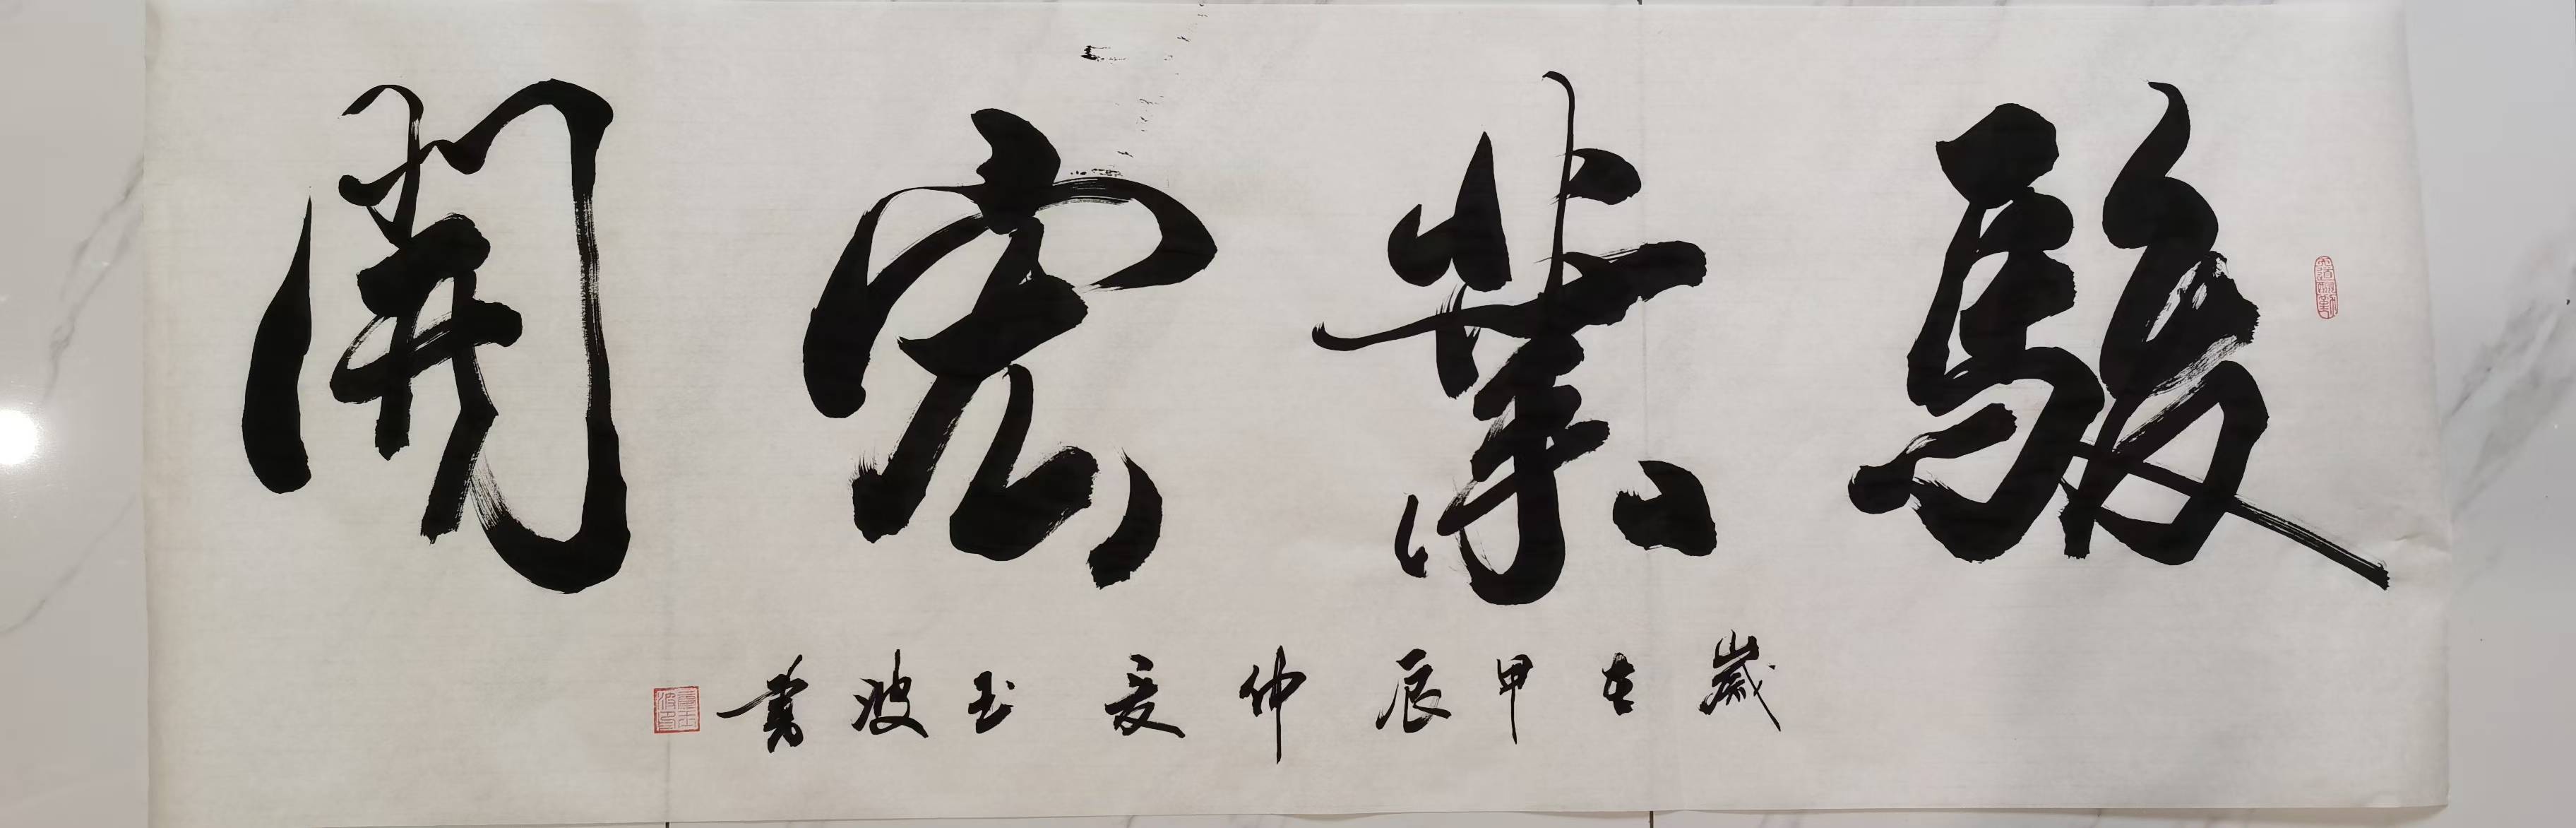 駿業宏開
歲在甲辰仲夏玉波書